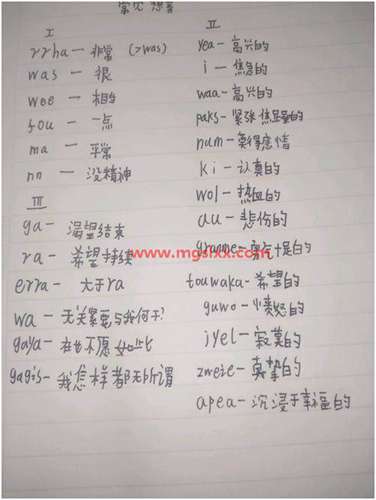 常见想音
I
rrha — 非常 (>was)
was — 很
wee — 相当
fou — 一点
ma — 平常
nn — 没精神
II
yea — 高兴的
i — 焦急的
waa — 高兴的
paks — 紧张焦虑的
num — 莫得感情
ki — 认真的
wol — 热血的
au — 悲伤的
granme — 勇气十足的
touwaka — 希望的
guwo — 愤怒的
iyel — 寂寞的
zweie — 真挚的
apea — 沉浸于幸福的
III
ga — 渴望结束
ra — 希望持续
erra — 大于ra
wa — 无关紧要与我何干?
gaya — 在也不愿如此
gagis — 我怎样都无所谓
www.mgslxx.com